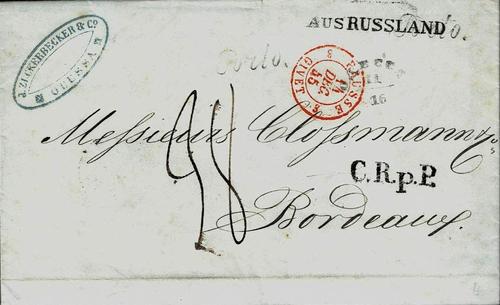 J. ZUCKERBECKER & Co
ODESSA
AUS RUSSLAND
Porto.
Porto.
PRUSSE 3 GIVET 3
14
DEC.
55
11
16
Messieurs Clossmann & Co
38
C.R.p.P.
Bordeaux.